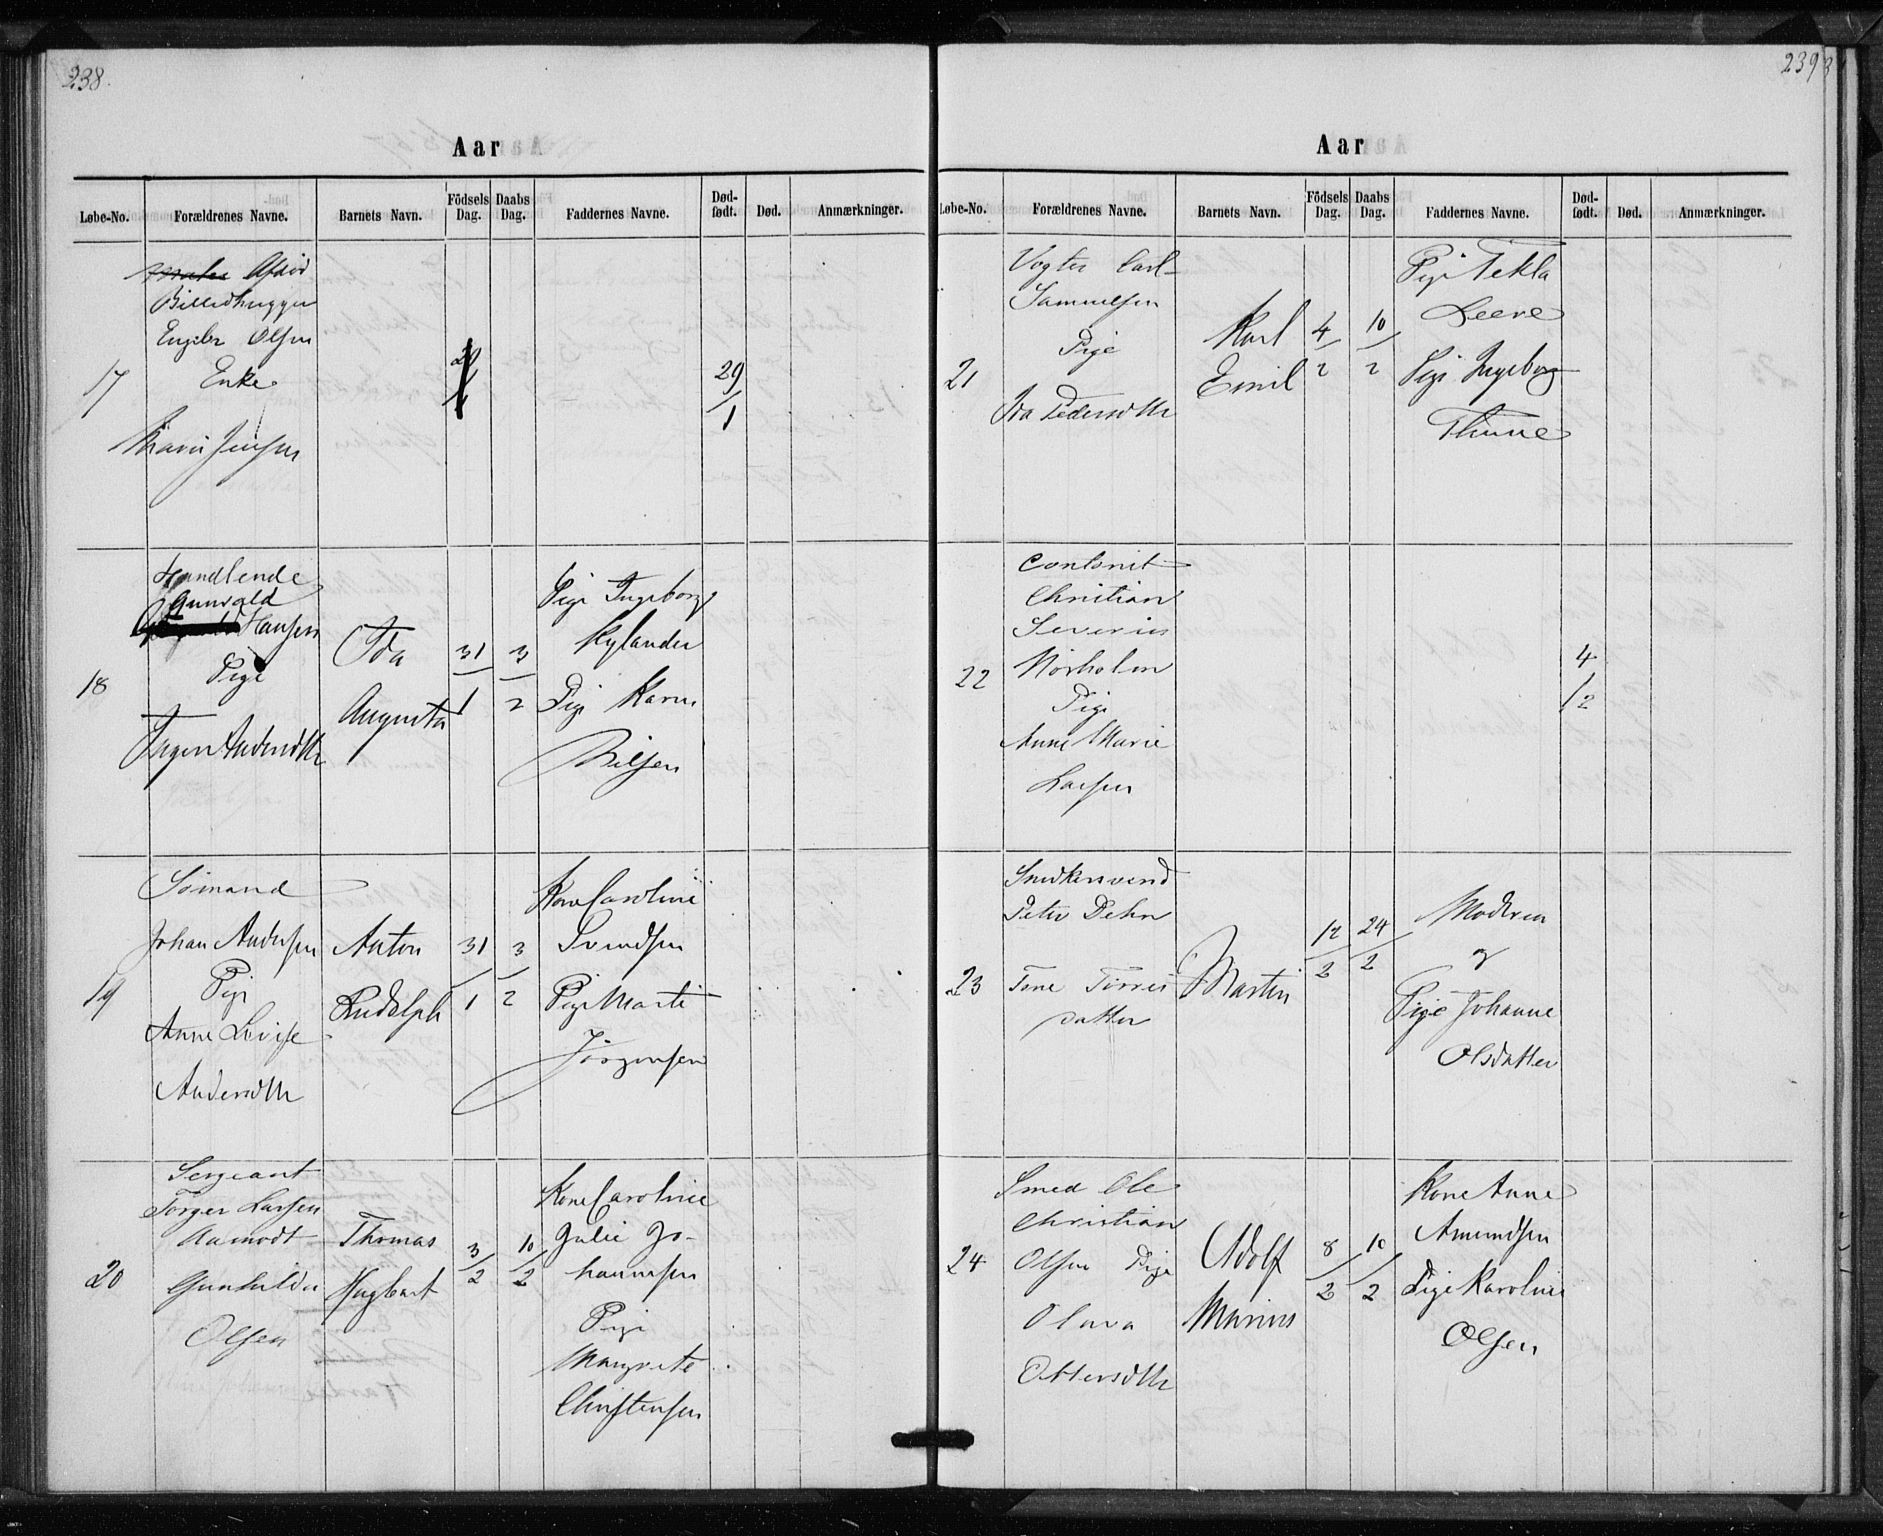 238.
Aar
Løbe-No. Forældrenes Navne. Barnets Navn. Födsels Dag. Daabs Dag. Faddernes Navne. Død-født. Død. Anmærkninger.
17
Afdød
Billedhugger
Engebr Olsen
Enke
Maria Jensen
29/1
29/1
18
Handlende
Gunvald
Hansen
Pige
Ingen Andersdttr
Ida
Augusta
31/1
3/2
Pige Ingeborg
Rylander
Pige Karen
Nilsen
19
Sømand
Johan Andersen
Pige
Anne Lovise
Andersdttr
Anton
Rudolph
31/1
3/2
Kone Caroline
Svendsen
Pige Marte
Jörgensen
20
Sergeant
Torger Larsen
Aamodt
Gunhilda
Olsen
Thomas
Hagbart
3/2
10/2
Kone Caroline
Julie Jo-
hannesen
Pige
Margrete
Christensen
239
Aar
Løbe-No. Forældrenes Navne. Barnets Navn. Födsels Dag. Daabs Dag. Faddernes Navne. Død-født. Død. Anmærkninger.
21
Vogter Carl
Samuelsen
Pige
Ida Pedersdttr
Karl
Emil
4/2
10/2
Pige Tekla
Leere
Pige Ingeborg
Thune
22
Contorist
Christian
Severin
Norholm
Pige
Anne Marie
Larsen
4/2
23
Snedkersvend
Peter Dehn
Tone Torres
datter
Martin
12/2
24/2
Modren
og
Pige Johanne
Olsdatter
24
Smed Ole
Christian
Olsen Pige
Olava
Ottersdttr
Adolf
Marius
8/2
10/2
Kone Anne
Amundsen
Pige Karoline
Olsen